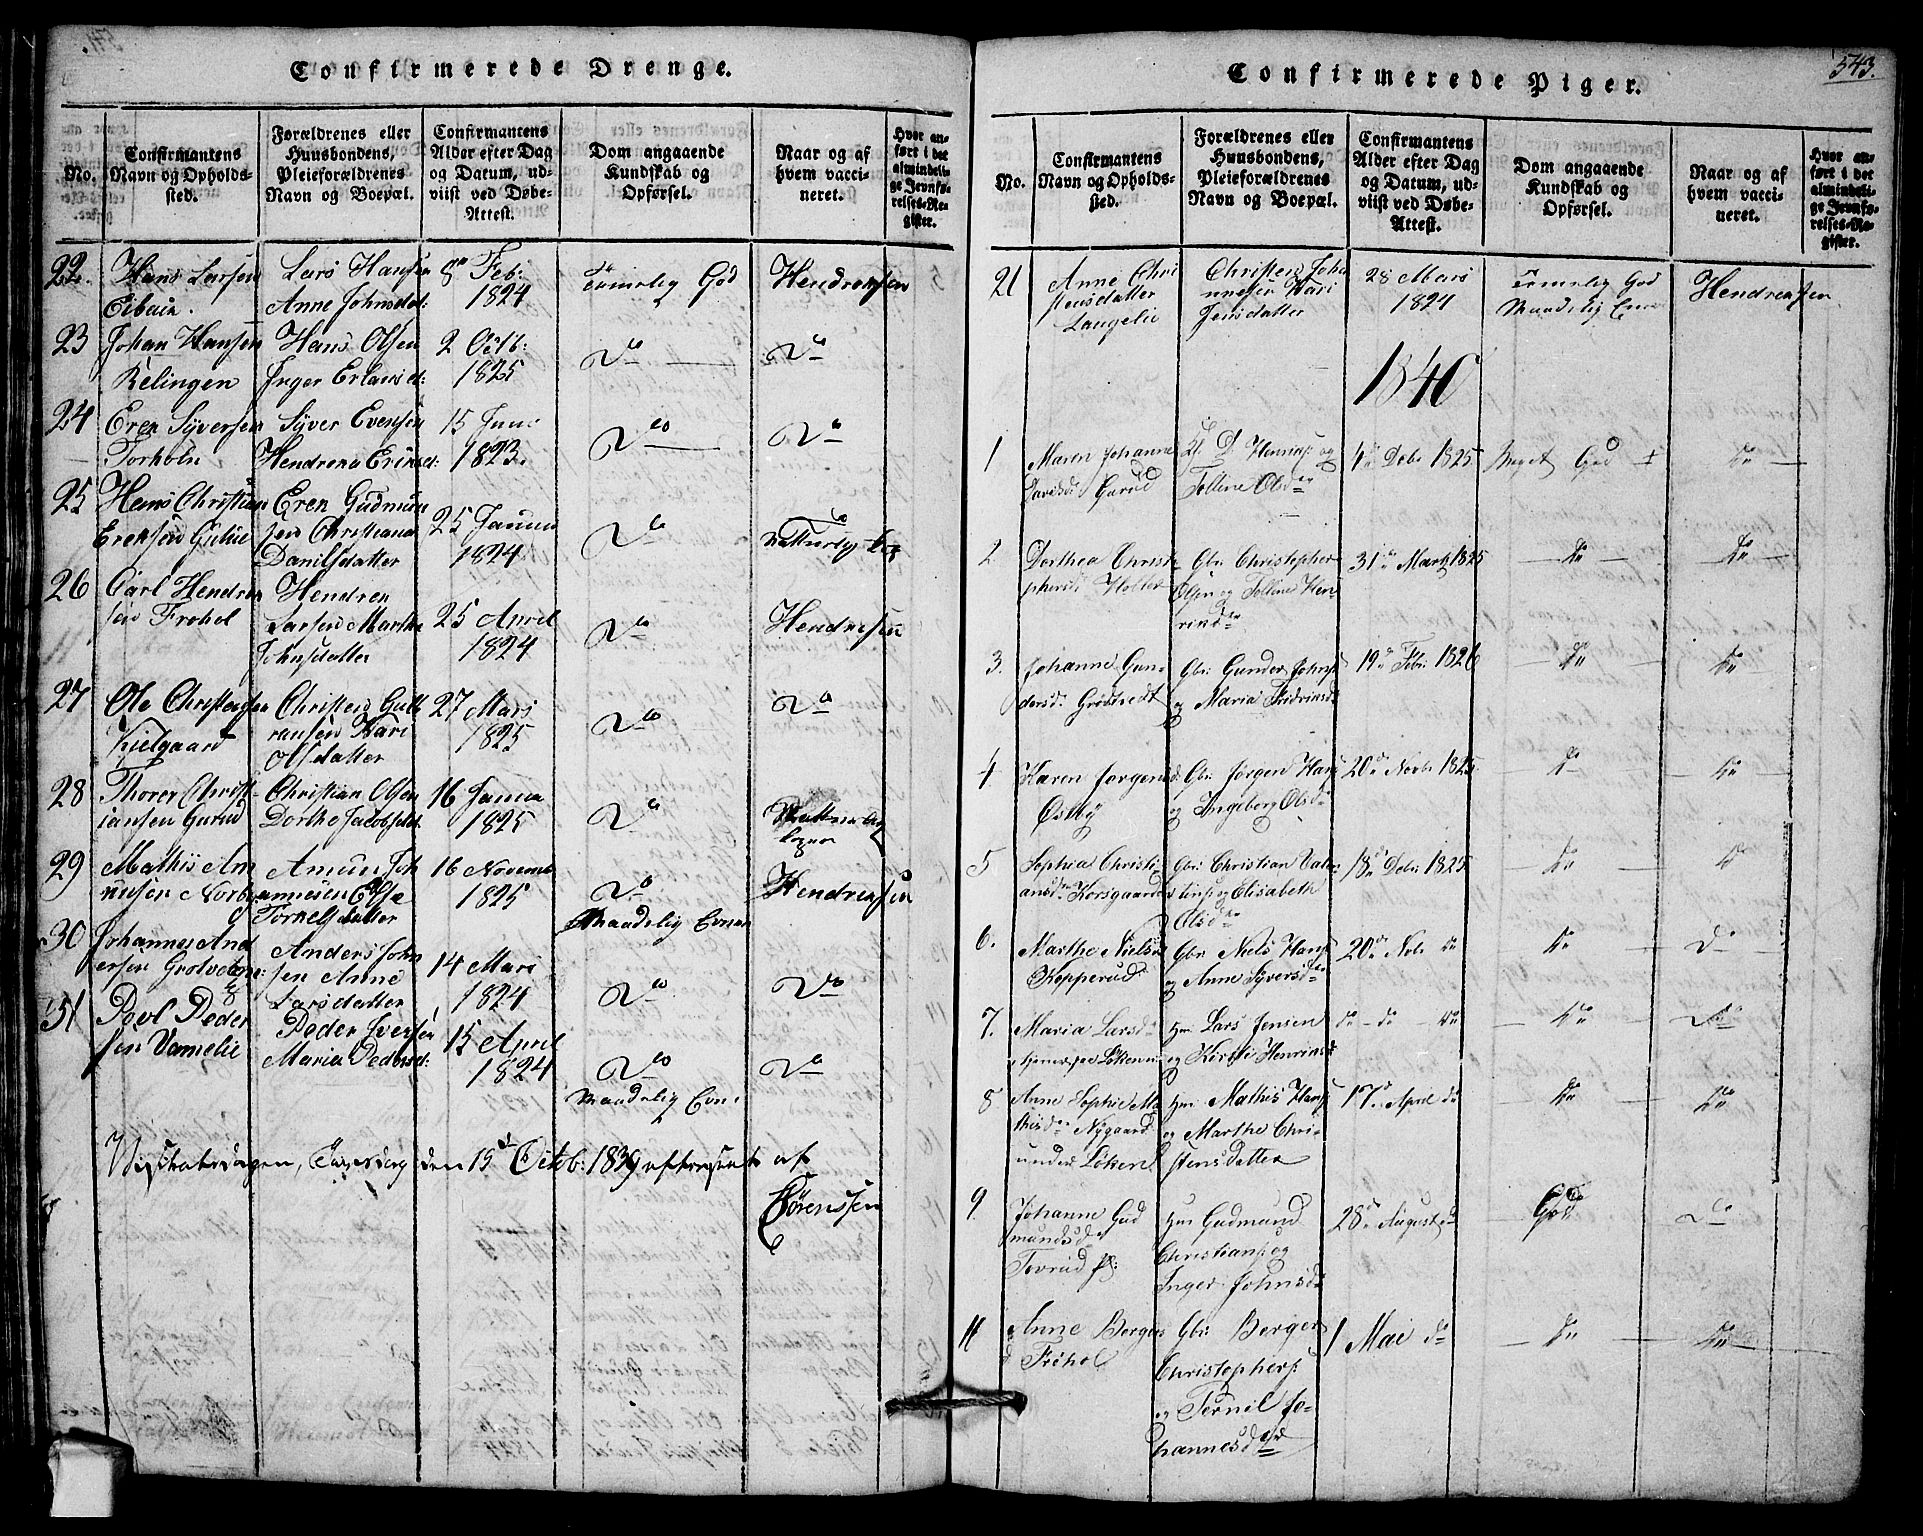 Confirmerede Drenge.
No.
Confirmantens
Navn og Opholds-
sted.
Forældrenes eller
Huusbondens,
Pleieforældrenes
Navn og Boepæl.
Confirmantens
Alder efter Dag
og Datum, ud-
viist ved Døbe-
Attest.
Dom angaaende
Kundskab og
Opførsel.
Naar og af
hvem vacci-
neret.
Hvor an-
ført i det
almindeli-
ge Jevnfø-
relses-Re-
gister.
22. Hans Larsen
Lars Hansen
Anne Johnsdat:
8de Feb:
1824
Temelig God
Hendrensen
23 Johan Hansen
Kelingen
Hans Olsen
Inger Erlansd:
2 Octb:
1825
Do
Do
24 Eren Syversen
Torholn
Syver Evensen
Hendrena Erinsd:
15 Juni
1823.
Do
Do
25 Hans Christian
Erensen
Eren Gudmun
sen Christiana
Danilsdatter
25 Januu
1824
Do
26 Carl Hendren
sen Frohol
Hendren
Larsen Marthe
Johnsdatter
25 April
1824
Do
Hendrensen
27 Ole Christensen
Kielgaard
Christen Gull
ransen Kari
Olsdatter
27 Mars
1825
Do
Do
28 Thorer Christ-
iansen Gurud
Christian Olsen
Dorthe Jacobsdat
16 Janua
1825
Do
29 Mathis Am
unsen Norbye
Amun Joh
annesen Else
Torkelsdatter
16 Novemb
1825
Do
Maadelig Evner
Hendrensen
30 Johannes And
ersen
Anders John
sen Anne
Larsdatter
14 Mars
1824
Do
Do
31 Povl Peder
sen Vamelie
Peder Iversen
Maria Pedersd:
15 April
1824
Do
Maadelig Evn:
Do
den 15de Octob: 1839 efterseet af
Sørenssen
543.
Confirmerede Piger.
No.
Confirmantens
Navn og Opholds-
sted.
Forældrenes eller
Huusbondens,
Pleieforældrenes
Navn og Boepæl.
Confirmantens
Alder efter Dag
og Datum, ud-
viist ved Døbe-
Attest.
Dom angaaende
Kundskab og
Opførsel.
Naar og af
hvem vacci-
neret.
Hvor an-
ført i det
almindeli-
ge Jevnfø-
relses-Re-
gister.
21 Anne Chri
stensdatter
Langelie
Christen Joha
nnesen Kari
Jensdatter
28 Mars
1824
Temelig God
Maadelig Evne
Hendrensen
1840
1 Maren Johanne
Gurud
D. Henrics: og
Tolline Olsdr
4de Debr 1825
Meget God
do
2. Dorthea Christ-
phersd: Holter
Gbr. Christopher
Olsen og Tolline Hen-
rinsdr
31te Marts 1825
do
do
3. Johanne Gun-
dersd: Grostvedt
Gbr: Gunder Johns:
og Maria Fridrinsd:
19de Febr: 1826
do
do
4 Karen Jørgensd:
Østby
Gbr: Jørgen Hans:
og Ingeborg Olsdr
20de Novbr 1825
do
do
5 Sophia Christi-
ansdr Korsgaarden
Gbr: Christian Valen-
tins: og Elisabeth
Olsdr
18de Debr: 1825
do
do
6. Marthe Nielsd:
Kopperud
Gbr. Niels Hans:
og Anne Syversdr
20de Nobr do
do
do
7. Maria Larsdr
Hm: Lars Jensen
og Kirsti Henrinsd:
do - do - do
do
do
8 Anne Sophie Ma-
thisdr Nygaard
under Løken
Hm: Mathis Hans:
og Marthe Chri-
stensdatter
17de April do
do
do
9. Johanne Gud
mundsdr
Tovrud
Hm: Gudmund
Christians: og
Inger Johnsdr
28de August do
God
do
11 Anne Bergers
Frøhol
Gbr: Berger
Christophers:
og Ternil Jo-
hannesdr
1 Mai do
do
do